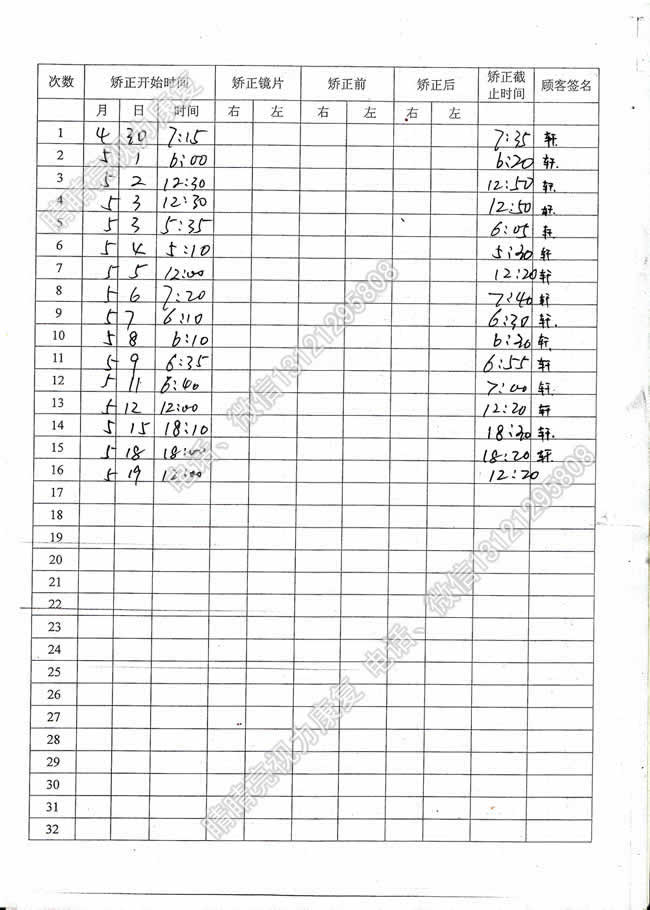 次数 矫正开始时间 矫正镜片 矫正前 矫正后 矫正截止时间 顾客签名
月 日 时间 右 左 右 左 右 左
1 4 30 7:15 7:35 轩
2 5 1 6:00 6:20 轩
3 5 2 12:30 12:50 轩
4 5 3 12:30 12:50 轩
5 5 3 5:35 6:05 轩
6 5 4 5:10 5:30 轩
7 5 5 12:00 12:20 轩
8 5 6 7:20 7:40 轩
9 5 7 6:10 6:30 轩
10 5 8 6:10 6:30 轩
11 5 9 6:35 6:55 轩
12 5 11 6:40 7:00 轩
13 5 12 12:00 12:20 轩
14 5 15 18:10 18:30 轩
15 5 18 18:00 18:20 轩
16 5 19 12:00 12:20
17
18
19
20
21
22
23
24
25
26
27
28
29
30
31
32
晴晴亮视力康复
电话、微信13121295808
晴晴亮视力康复 电话、微信13121295808